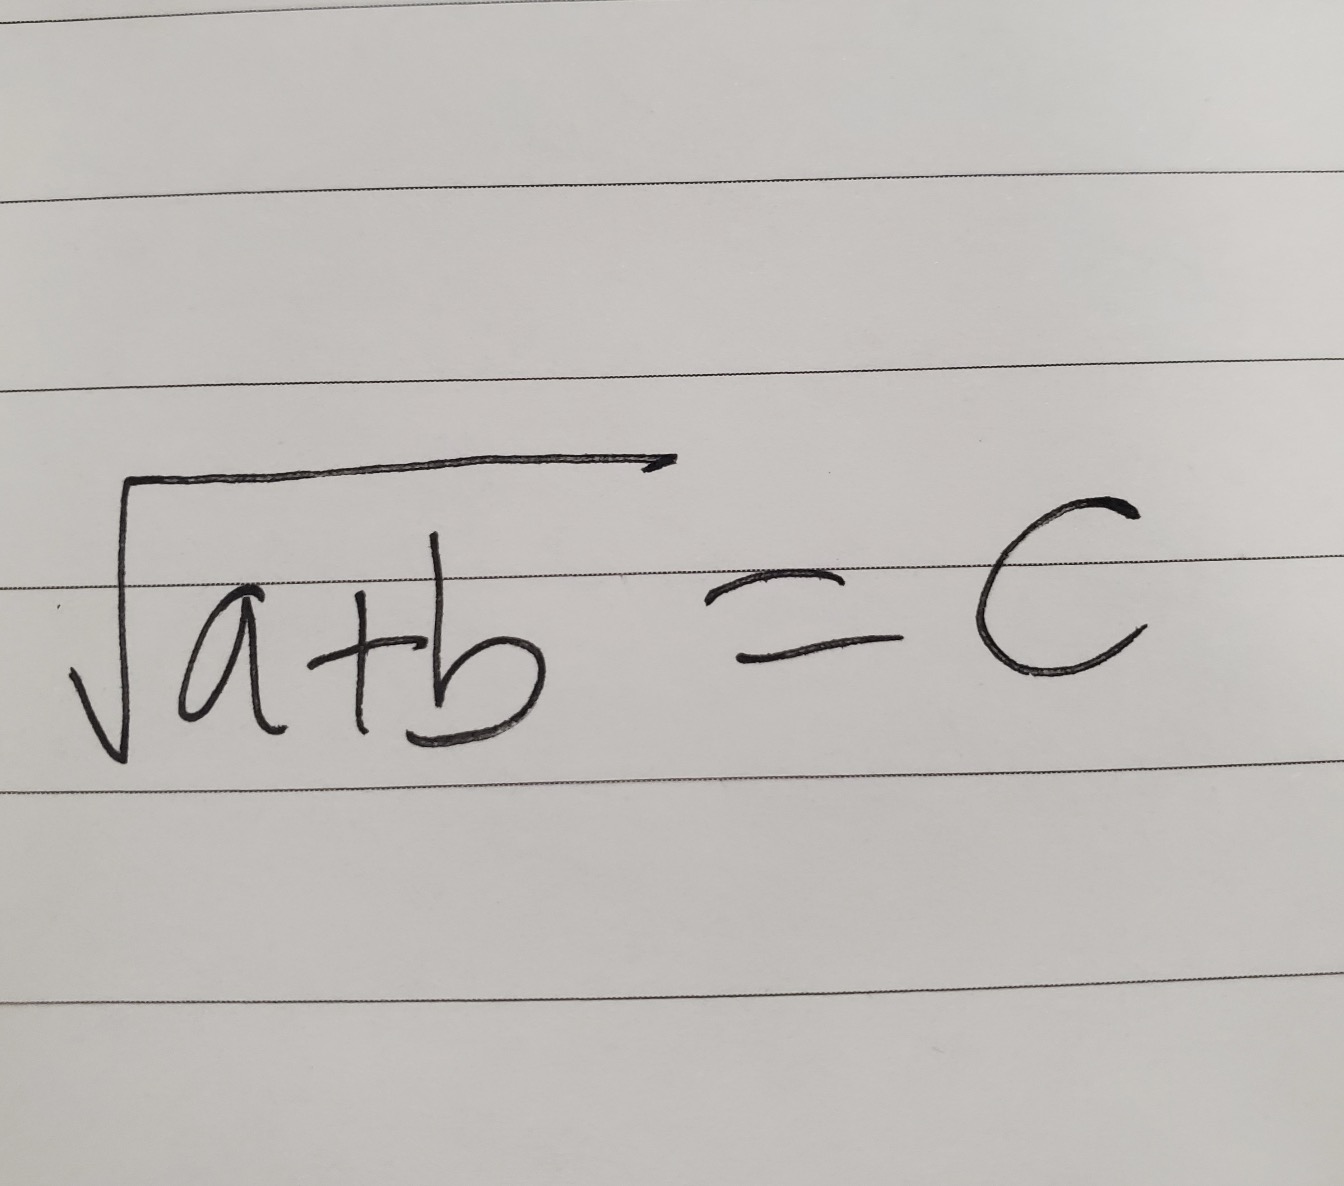 √a+b = C